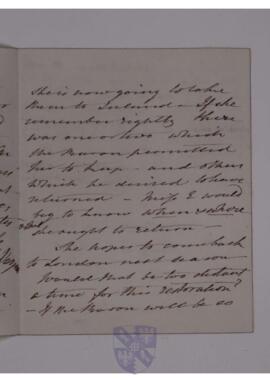 She is now going to take
them to Ireland – If she
remember rightly there
was one or two which
the Baron permitted
her to keep – and others
which he desired to have
returned – Miss E would
beg to know when & where
she ought to return –
She hopes to come back
to London next season –
Would that be too distant
a time for this restoration?
– If the Baron will be so